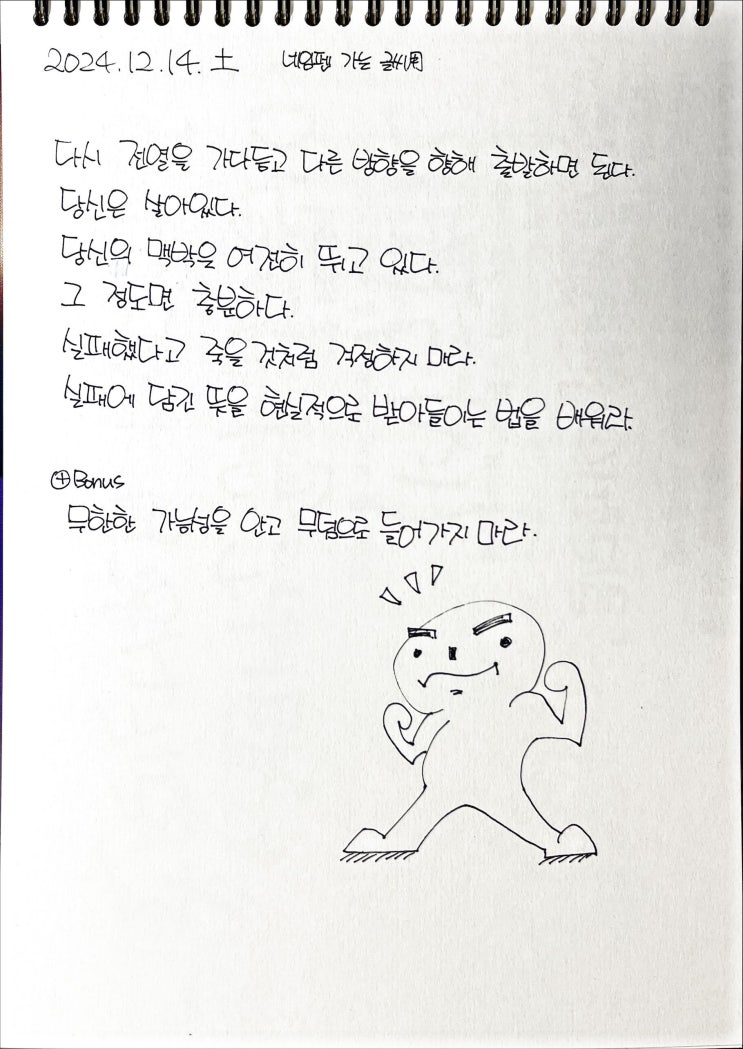 2024.12.14. 土 네임펜 가는 글씨用
다시 전열을 가다듬고 다른 방향을 향해 출발하면 된다.
당신은 살아있다.
당신의 맥박은 여전히 뛰고 있다.
그 정도면 충분하다.
실패했다고 죽을 것처럼 걱정하지 마라.
실패에 담긴 뜻을 현실적으로 받아들이는 법을 배워라.
⊕Bonus
무한한 가능성을 안고 무덤으로 들어가지 마라.